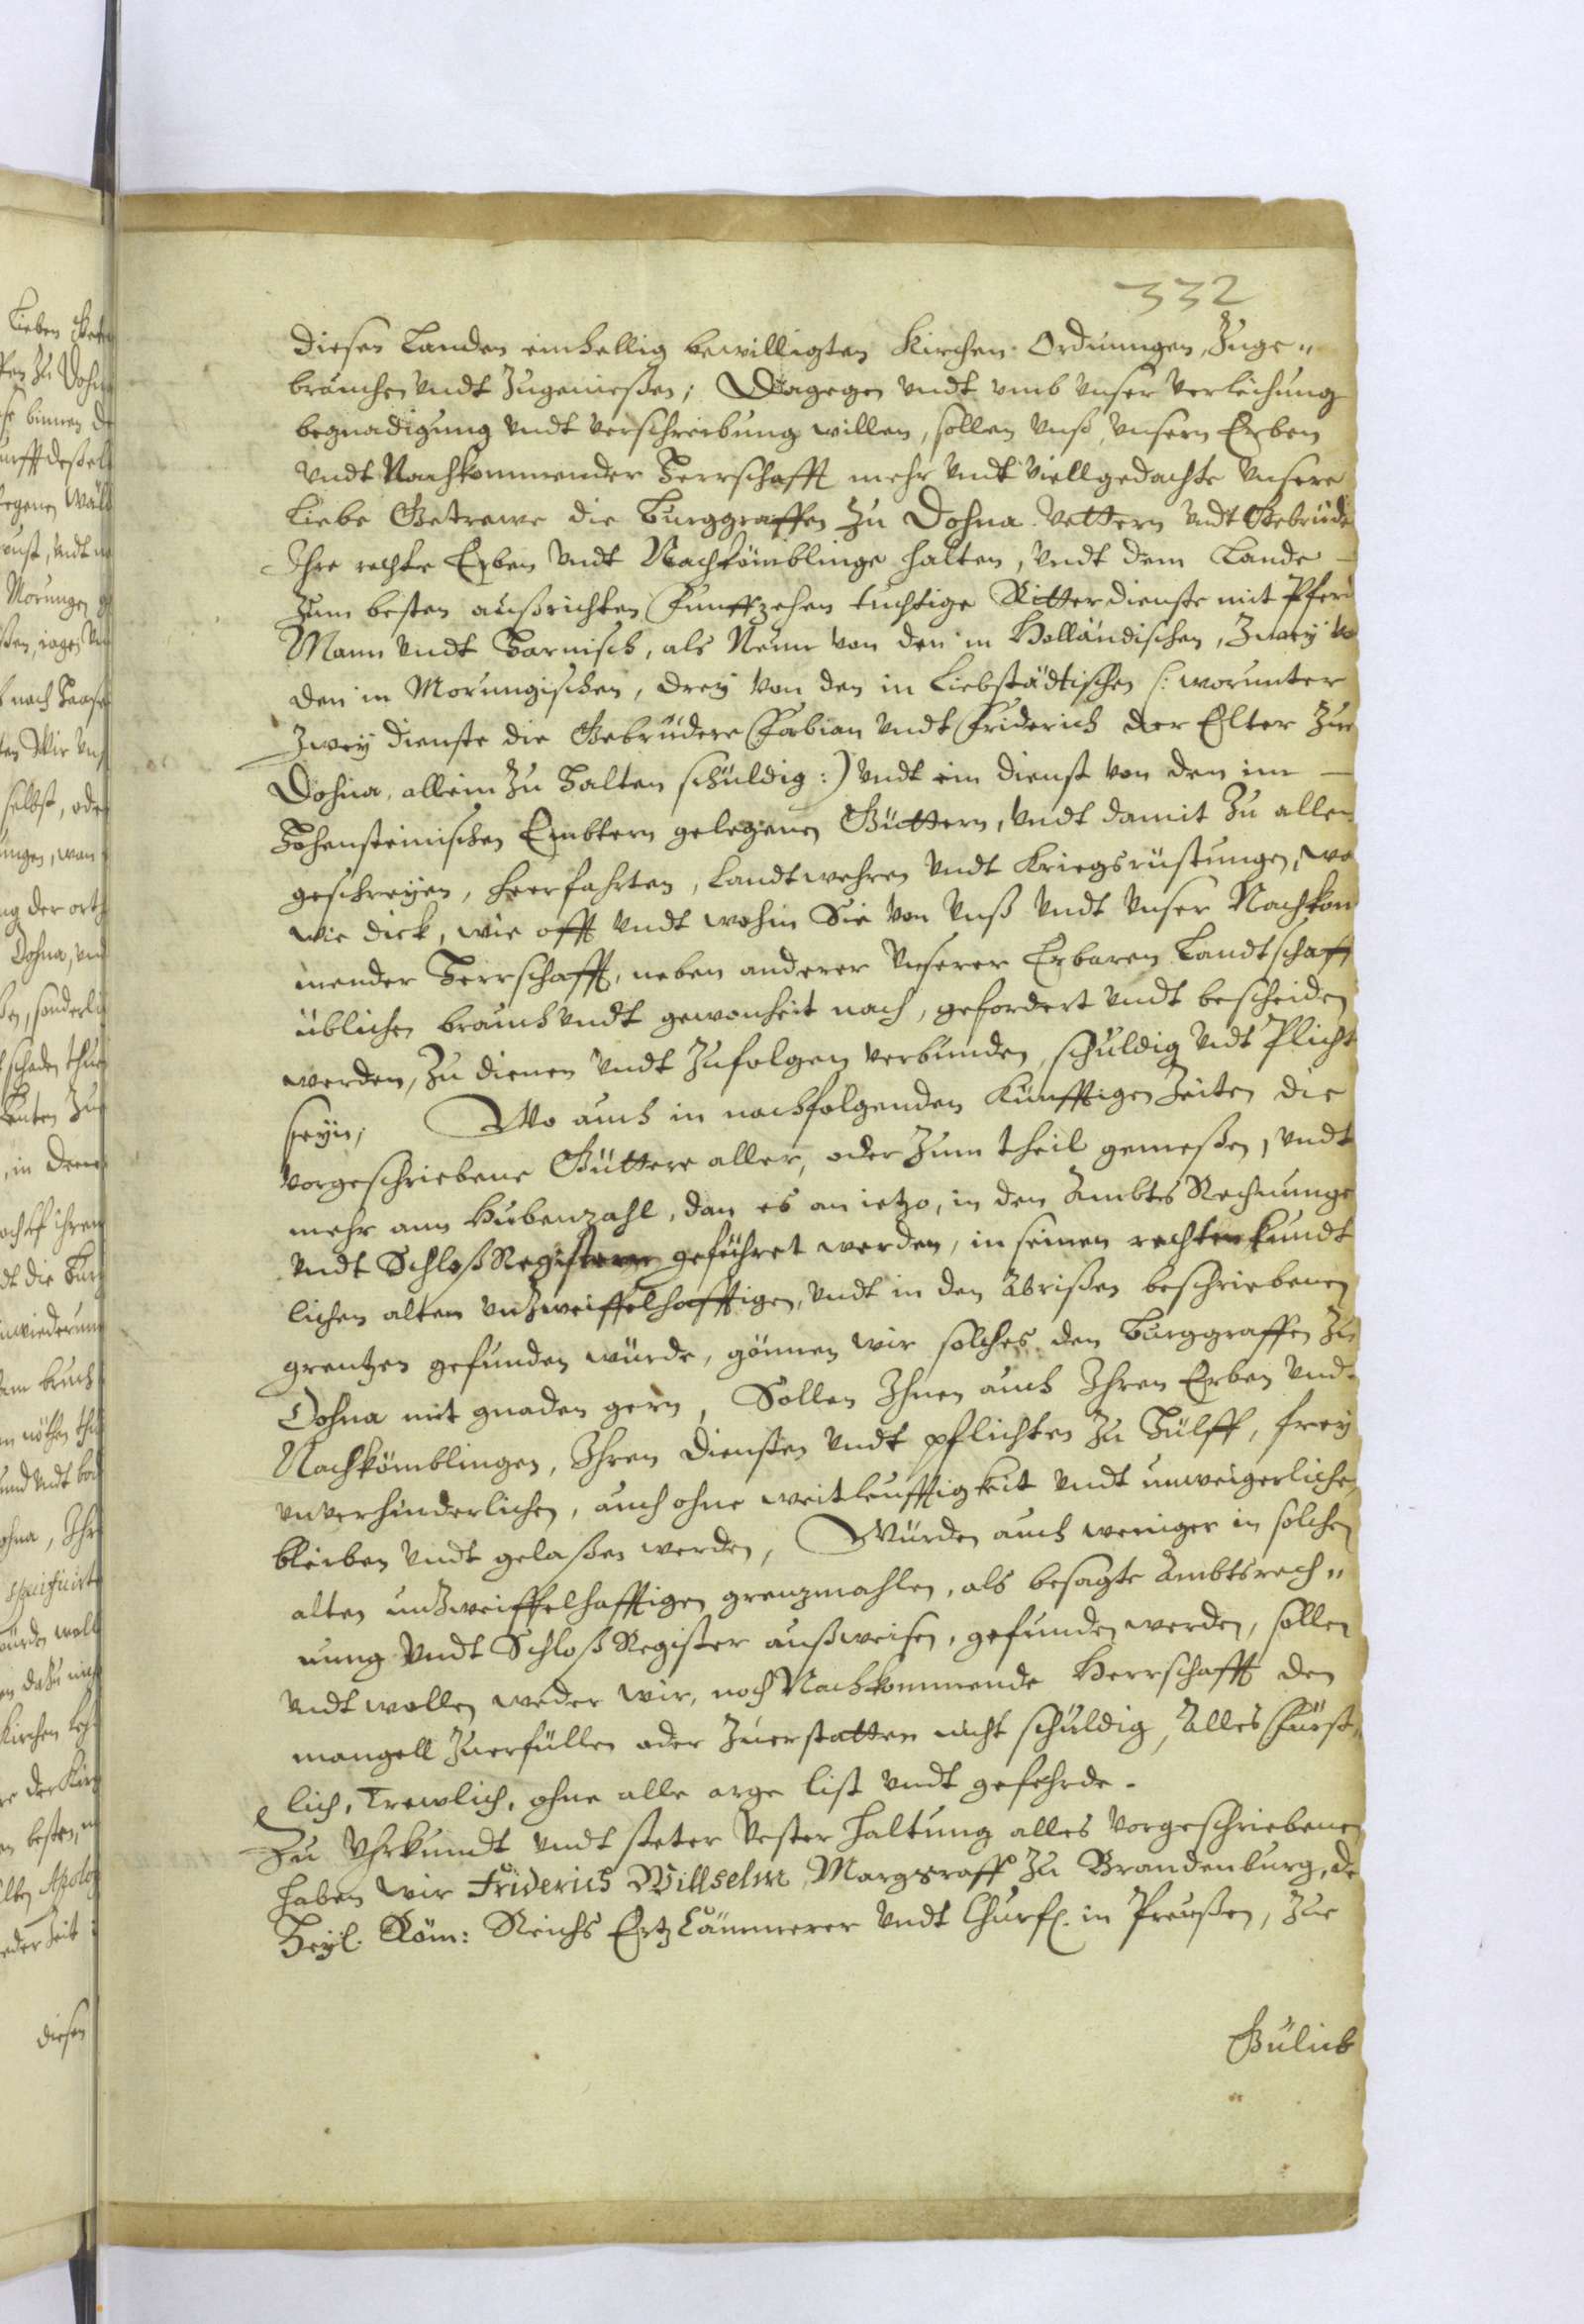 332
diesen Landen einhellig bewilligten Kirchen-Ordnungen, Zuge„
brauchen vndt Zugeniessen; Dagegen vndt vmb vnser verleihung
begnadigung vndt verschreibung willen, sollen vnß, vnsern Erben
vndt Nachkommender Herrschafft mehr vndt viellgedachte vnsere
Liebe Getrewe die Burggraffen zu Dohna Vettern vndt Gebrüde
Ihre rechte Erben vndt Nachkömblinge halten, vndt dem Lande
zum besten außrichten Funffzehen tuchtige Ritterdienste mit Pferd
Mann vndt Harnisch, als Neun von den im Holländischen, Zwey
den im Morungischen, drey von den in Liebstädtischen (: worunter
Zwey dienste die Gebrüdere Fabian vndt Friderich der Elter Zue
Dohna, allein zu halten schuldig :) vndt ein dienst von den im
Hohensteinischen Embtern gelegenen Güttern, vndt damit zu allen
geschreyen, Heerfahrten, Landtwehren vndt Kriegsrüstungen, wo
wie dick, wie offt vndt wohin Sie von vnß vndt vnser Nachkom
mender Herrschafft, neben anderer vnserer Erbaren Landtschaff
üblichen brauch vndt gewonheit nach, gefordert vndt bescheiden
werden, zu dienen vndt Zufolgen verbunden, schuldig vndt Plicht
seyn; Wo auch in nachfolgenden Künfftigen Zeiten die
vorgeschriebene Güttere aller, oder zum theil gemeßen, vndt
mehr ann Hubenzahl, dan es an ietzo, in den Ambts Rechnunge
vndt Schloß Registern geführet werden, in seinen rechten kundt
lichen alten vnzweiffelhafftigen, vndt in den Abrißen beschriebenen
grentzen gefunden würde, gönnen wir solches den Burggraffen Zu
Dohna mit gnaden gern, Sollen Ihnen auch Ihren Erben vnd
Nachkömblingen, Ihren diensten vndt pflichten zu Hülff, frey
vnverhinderlichen, auch ohne weitleufftigkeit vndt unweigerlichen
bleiben vndt gelaßen werden, Würden auch weniger in solchen
alten unzweiffelhafftigen grenzmahlen, als besagte Ambtsrech„
nung vndt Schloß Register außweisen, gefunden werden, sollen
vndt wollen weder wir, noch Nachkommende Herrschafft den
mangell Zuerfüllen oder Zuerstatten nicht schuldig, Alles Fürst„
lich, Trewlich, ohne alle arge list vndt gefehrde.
Zu Vhrkundt vndt steter vester haltung alles vorgeschriebenen
haben wir Friderich Willhelm, Marggraff zu Brandenburg, de
Heyl. Röm: Reichs Ertz Cämmerer vndt Churf. in Preußen, Zue
Gülich